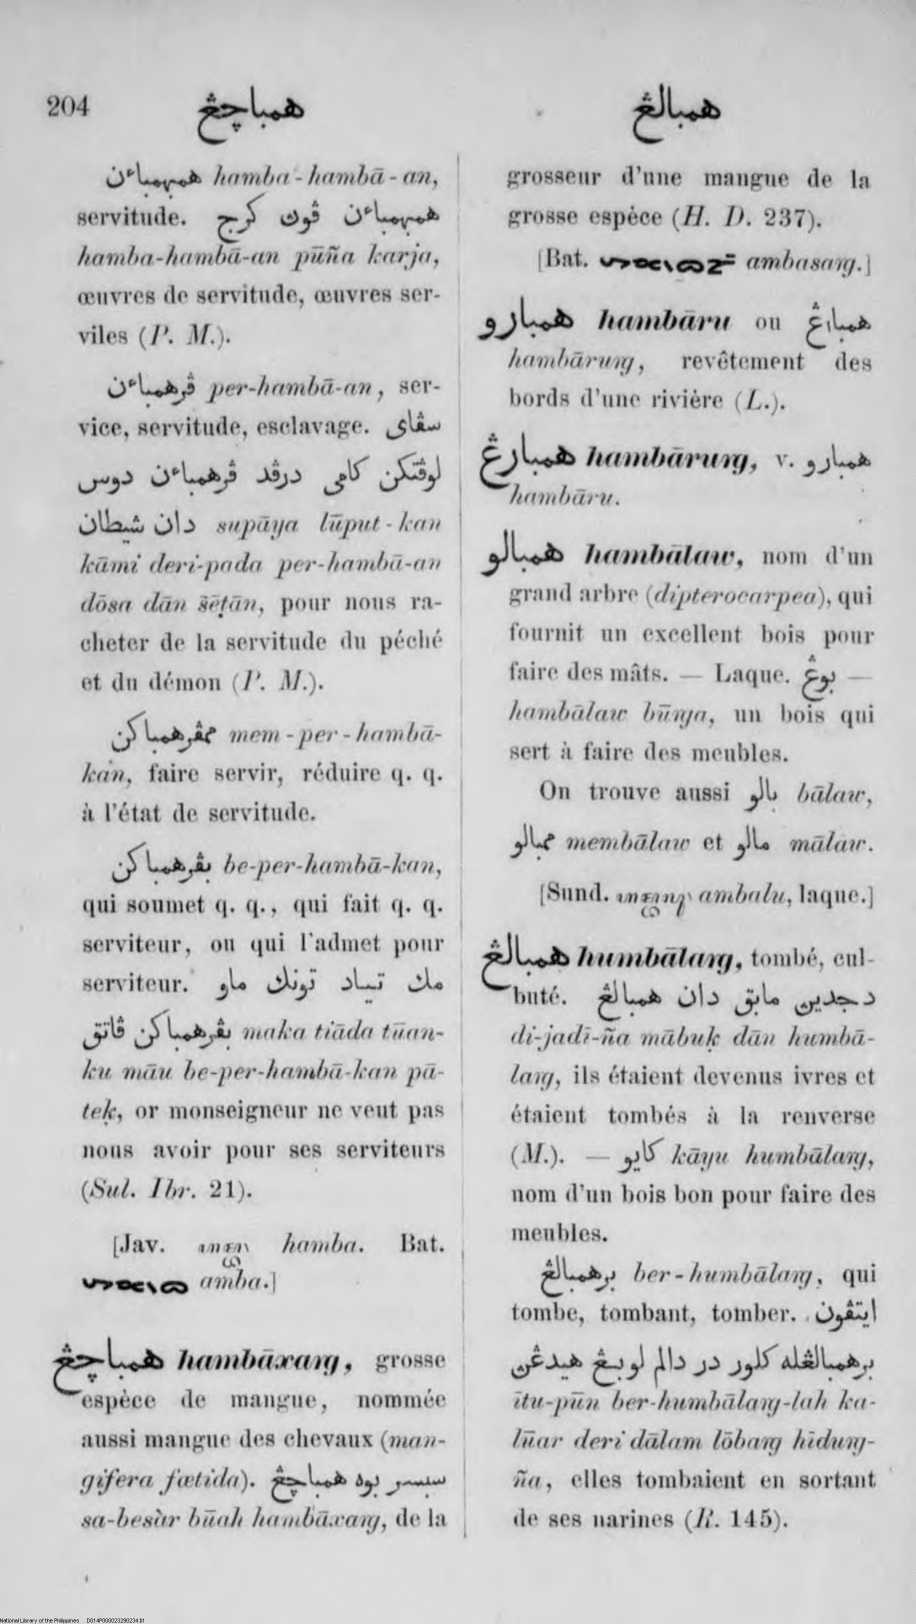 204
همباچڠ
همبالڠ
همبهمباءن hamba-hambā-an,
servitude. همبهمباءن ڤون كرج
hamba-hambā-an pūña karja,
œuvres de servitude, œuvres ser-
viles (P. M.).
ڤرهمباءن per-hambā-an, ser-
vice, servitude, esclavage. سڤاى
لوڤتكن كامى درڤد ڤرهمباءن دوس
دان شيطان supāya lūput-kan
kāmi deri-pada per-hambā-an
dōsa dān šēṭān, pour nous ra-
cheter de la servitude du péché
et du démon (P. M.).
ممڤرهمباكن mem-per-hambā-
kan, faire servir, réduire q. q.
à l'état de servitude.
بڤرهمباكن be-per-hambā-kan,
qui soumet q. q., qui fait q. q.
serviteur, ou qui l'admet pour
serviteur. مك تياد تونك ماو
بڤرهمباكن ڤاتق maka tiāda tūan-
ku māu be-per-hambā-kan pā-
teḳ, or monseigneur ne veut pas
nous avoir pour ses serviteurs
(Sul. Ibr. 21).
[Jav. hamba. Bat.
amba.]
همباچڠ hambāxaṃg, grosse
espèce de mangue, nommée
aussi mangue des chevaux (man-
gifera fœtida). سبسر بوه همباچڠ
sa-besàr būah hambāxaṃg, de la
grosseur d'une mangue de la
grosse espèce (H. D. 237).
[Bat. ambasaṃg.]
همبارو hambāru ou همبارڠ
hambāruṃg, revêtement des
bords d'une rivière (L.).
همبارڠ hambāruṃg, v. همبارو
hambāru.
همبالو hambālaw, nom d'un
grand arbre (dipterocarpea), qui
fournit un excellent bois pour
faire des mâts. — Laque. بوڠ —
hambālaw būṃga, un bois qui
sert à faire des meubles.
On trouve aussi بالو bālaw,
ممبالو membālaw et مالو mālaw.
[Sund. ambalu, laque.]
همبالڠ humbālaṃg, tombé, cul-
buté. دجدين مابق دان همبالڠ
di-jadī-ña mābuḳ dān humbā-
laṃg, ils étaient devenus ivres et
étaient tombés à la renverse
(M.). — كايو kāyu humbālaṃg,
nom d'un bois bon pour faire des
meubles.
برهمبالڠ ber-humbālaṃg, qui
tombe, tombant, tomber. ايتڤون
برهمبالڠله كلور در دالم لوبڠ هيدڠن
ītu-pūn ber-humbālaṃg-lah ka-
lūar deri dālam lōbaṃg hīduṃg-
ña, elles tombaient en sortant
de ses narines (R. 145).
National Library of the Philippines